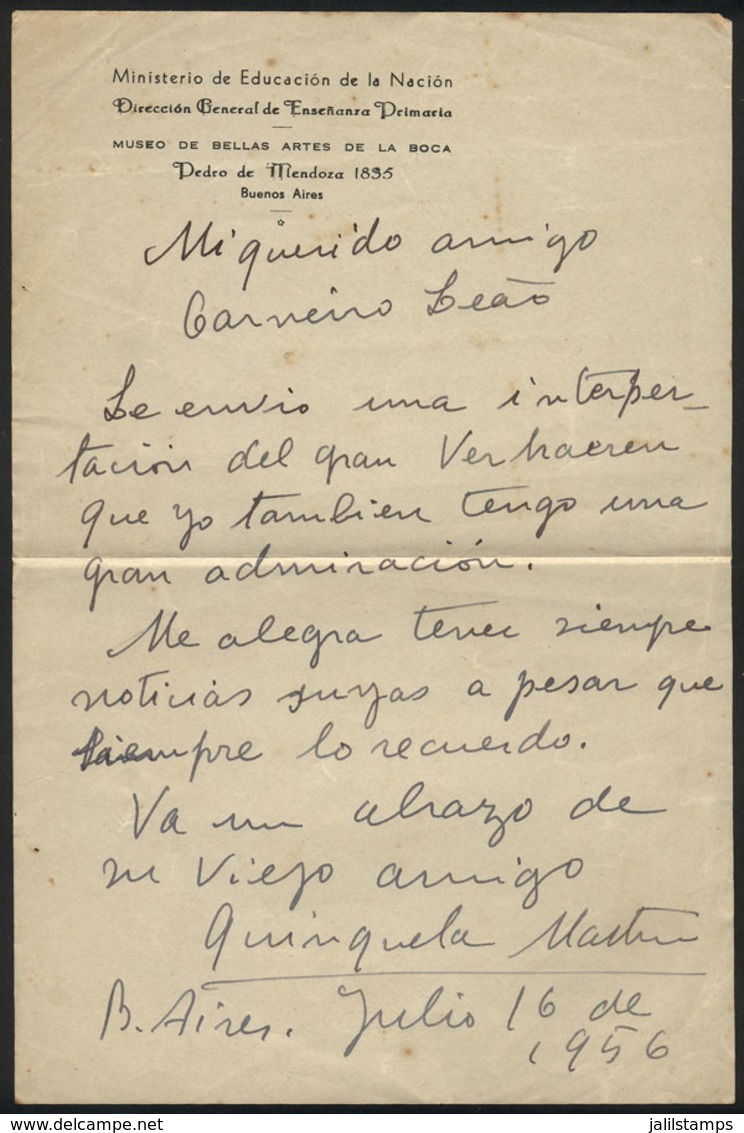 Ministerio de Educación de la Nación
Dirección General de Enseñanza Primaria
MUSEO DE BELLAS ARTES DE LA BOCA
Pedro de Mendoza 1835
Buenos Aires
Mi querido amigo
Carneiro Leão
Le envio una interper-
tación del gran Verhaeren
que yo tambien tengo una
gran admiración.
Me alegra tener siempre
noticias suyas a pesar que
siempre lo recuerdo.
Va un abrazo de
su viejo amigo
Quinquela Martin
B. Aires. Julio 16 de
1956
jalilstamps